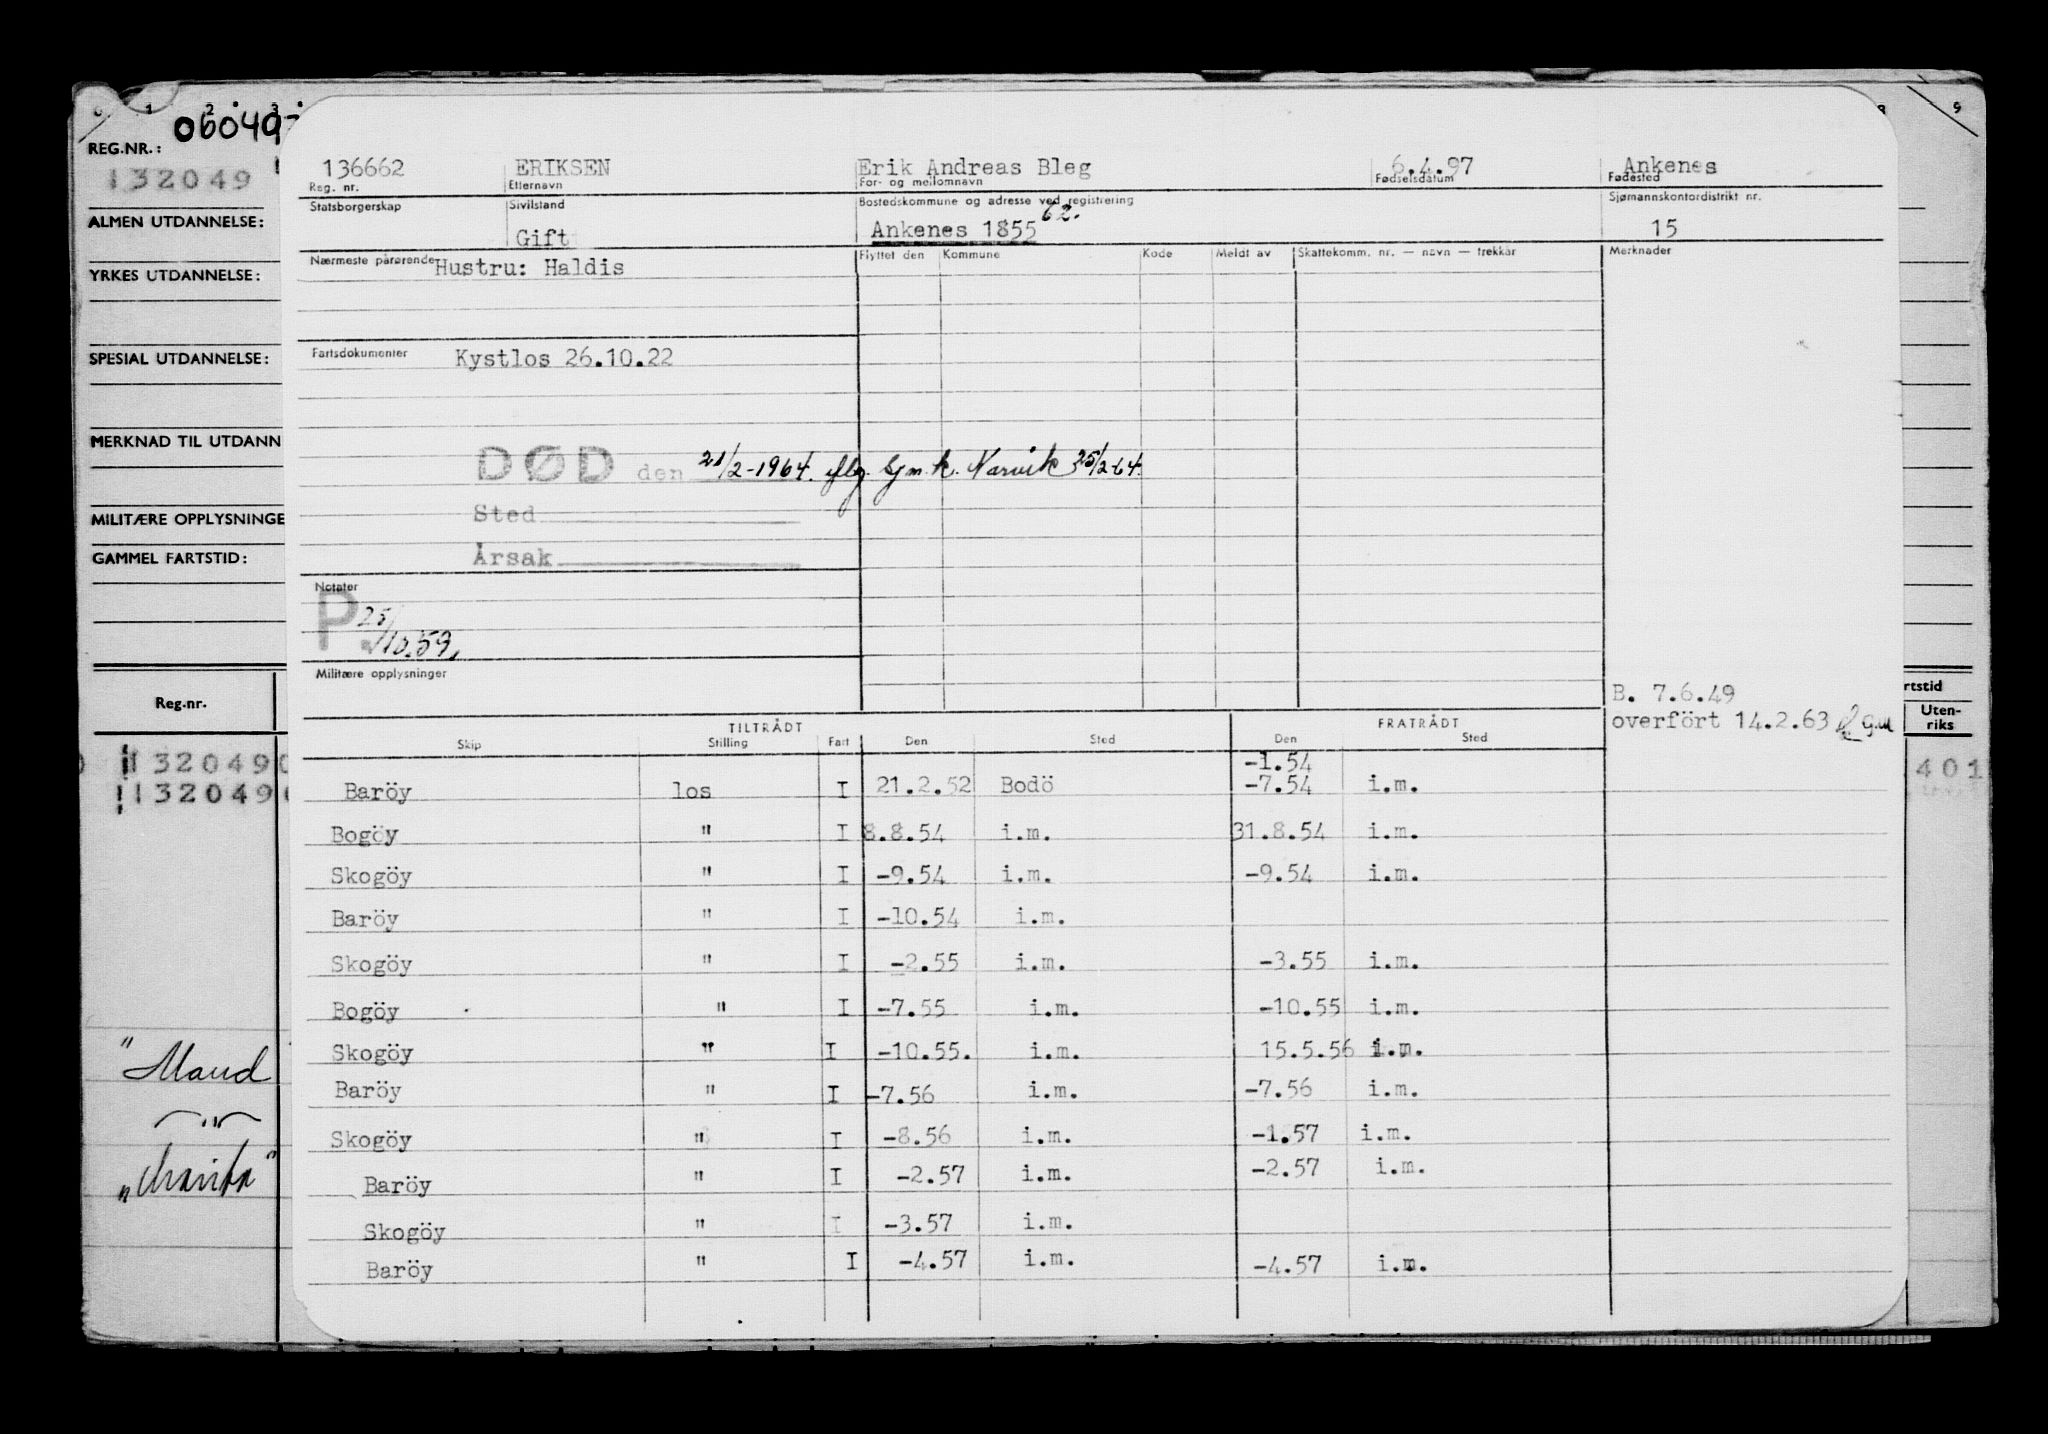 0 1 2 3 8 9
06049
REG.NR.:
132049
ALMEN UTDANNELSE:
YRKES UTDANNELSE:
SPESIAL UTDANNELSE:
MERKNAD TIL UTDANN
MILITÆRE OPPLYSNINGE
GAMMEL FARTSTID:
Reg.nr.
132049
132049
"Maud
"
rtstid
Uten-
riks
401
136662 ERIKSEN Erik Andreas Bleg 6.4.97 Ankenes
Reg. nr. Etternavn For- og mellomnavn Fødselsdatum Fødested
Statsborgerskap Sivilstand Bostedskommune og adresse ved registrering Sjømannskontordistrikt nr.
62.
Gift Ankenes 1855 15
Nærmeste pårørende Hustru: Haldis Flyttet den Kommune Kode Meldt av Skattekomm. nr. — navn — trekkår Merknader
Fartsdokumenter Kystlos 26.10.22
DØD den 21/2-1964. iflg. Sjm.k. Narvik 25/2-64.
Sted
Årsak
Notater
P. 25/10.59.
Militære opplysninger
B. 7.6.49
overført 14.2.63
TILTRÅDT FRATRÅDT
Skip Stilling Fart Den Sted Den Sted
-1.54
Baröy los I 21.2.52 Bodö -7.54 i.m.
Bogöy " I 8.8.54 i.m. 31.8.54 i.m.
Skogöy " I -9.54 i.m. -9.54 i.m.
Baröy " I -10.54 i.m.
Skogöy " I -2.55 i.m. -3.55 i.m.
Bogöy " I -7.55 i.m. -10.55 i.m.
Skogöy " I -10.55. i.m. 15.5.56 i.m.
Baröy " I -7.56 i.m. -7.56 i.m.
Skogöy " I -8.56 i.m. -1.57 i.m.
Baröy " I -2.57 i.m. -2.57 i.m.
Skogöy " I -3.57 i.m.
Baröy " I -4.57 i.m. -4.57 i.m.